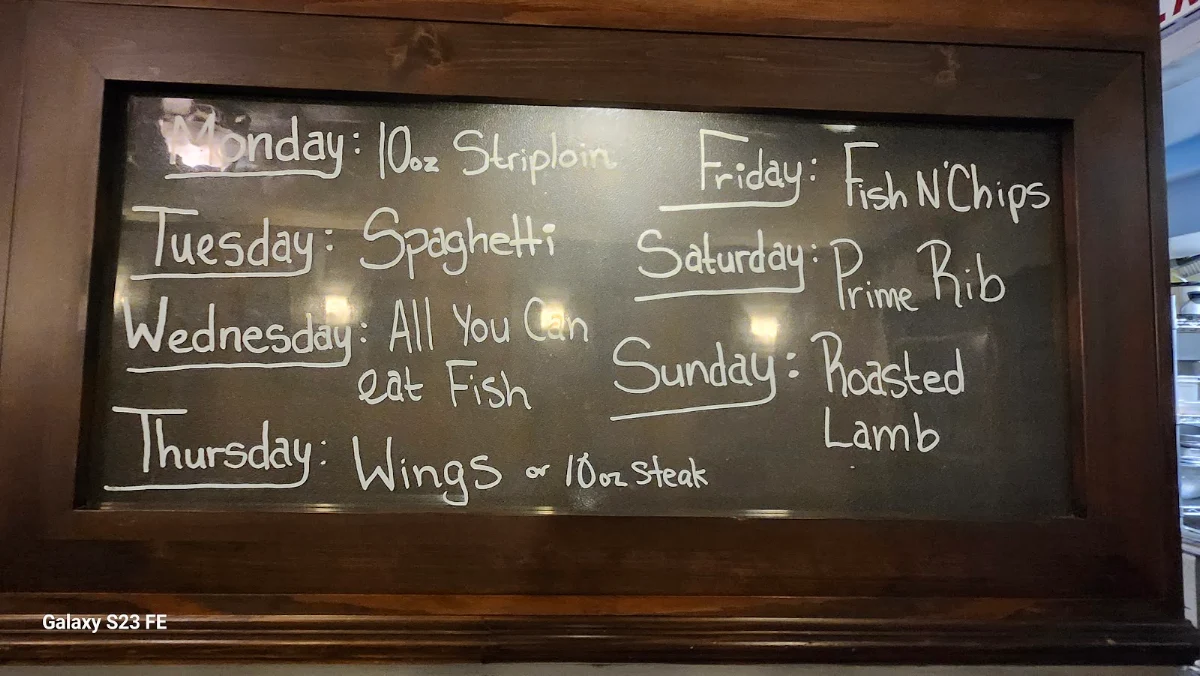 Monday: 10oz Striploin
Tuesday: Spaghetti
Wednesday: All You Can
eat Fish
Thursday: Wings or 10oz steak
Friday: Fish N'Chips
Saturday: Prime Rib
Sunday: Roasted
Lamb
Galaxy S23 FE